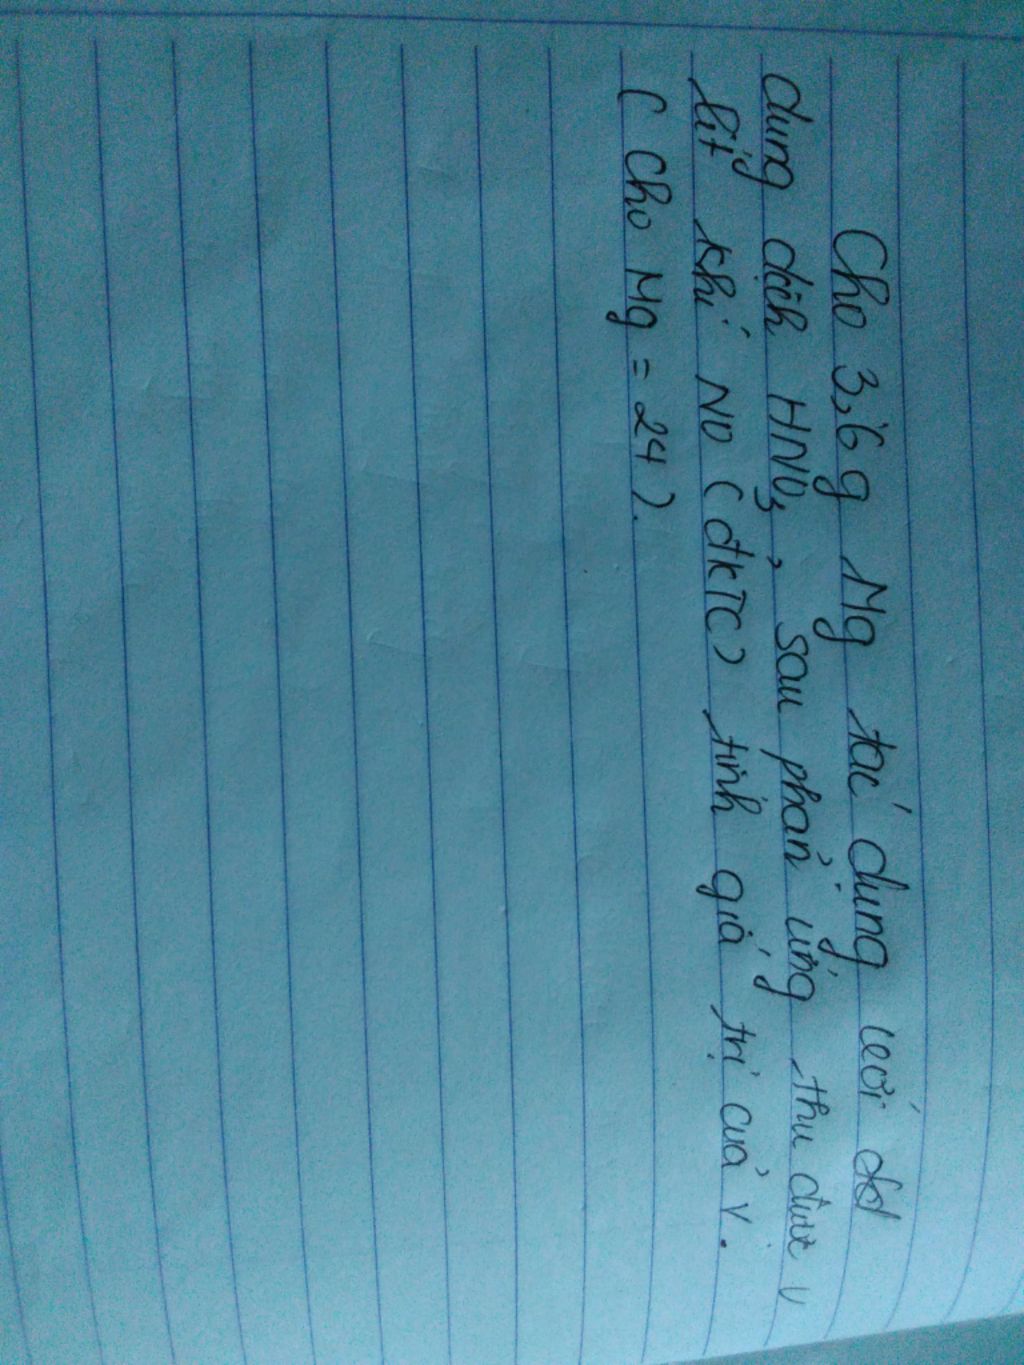 Cho 3,6 g Mg tác dụng với
dung dịch HNO3, sau phản ứng thu được V
lít khí NO (đkTC) tính giá trị của V.
( Cho Mg = 24 ).